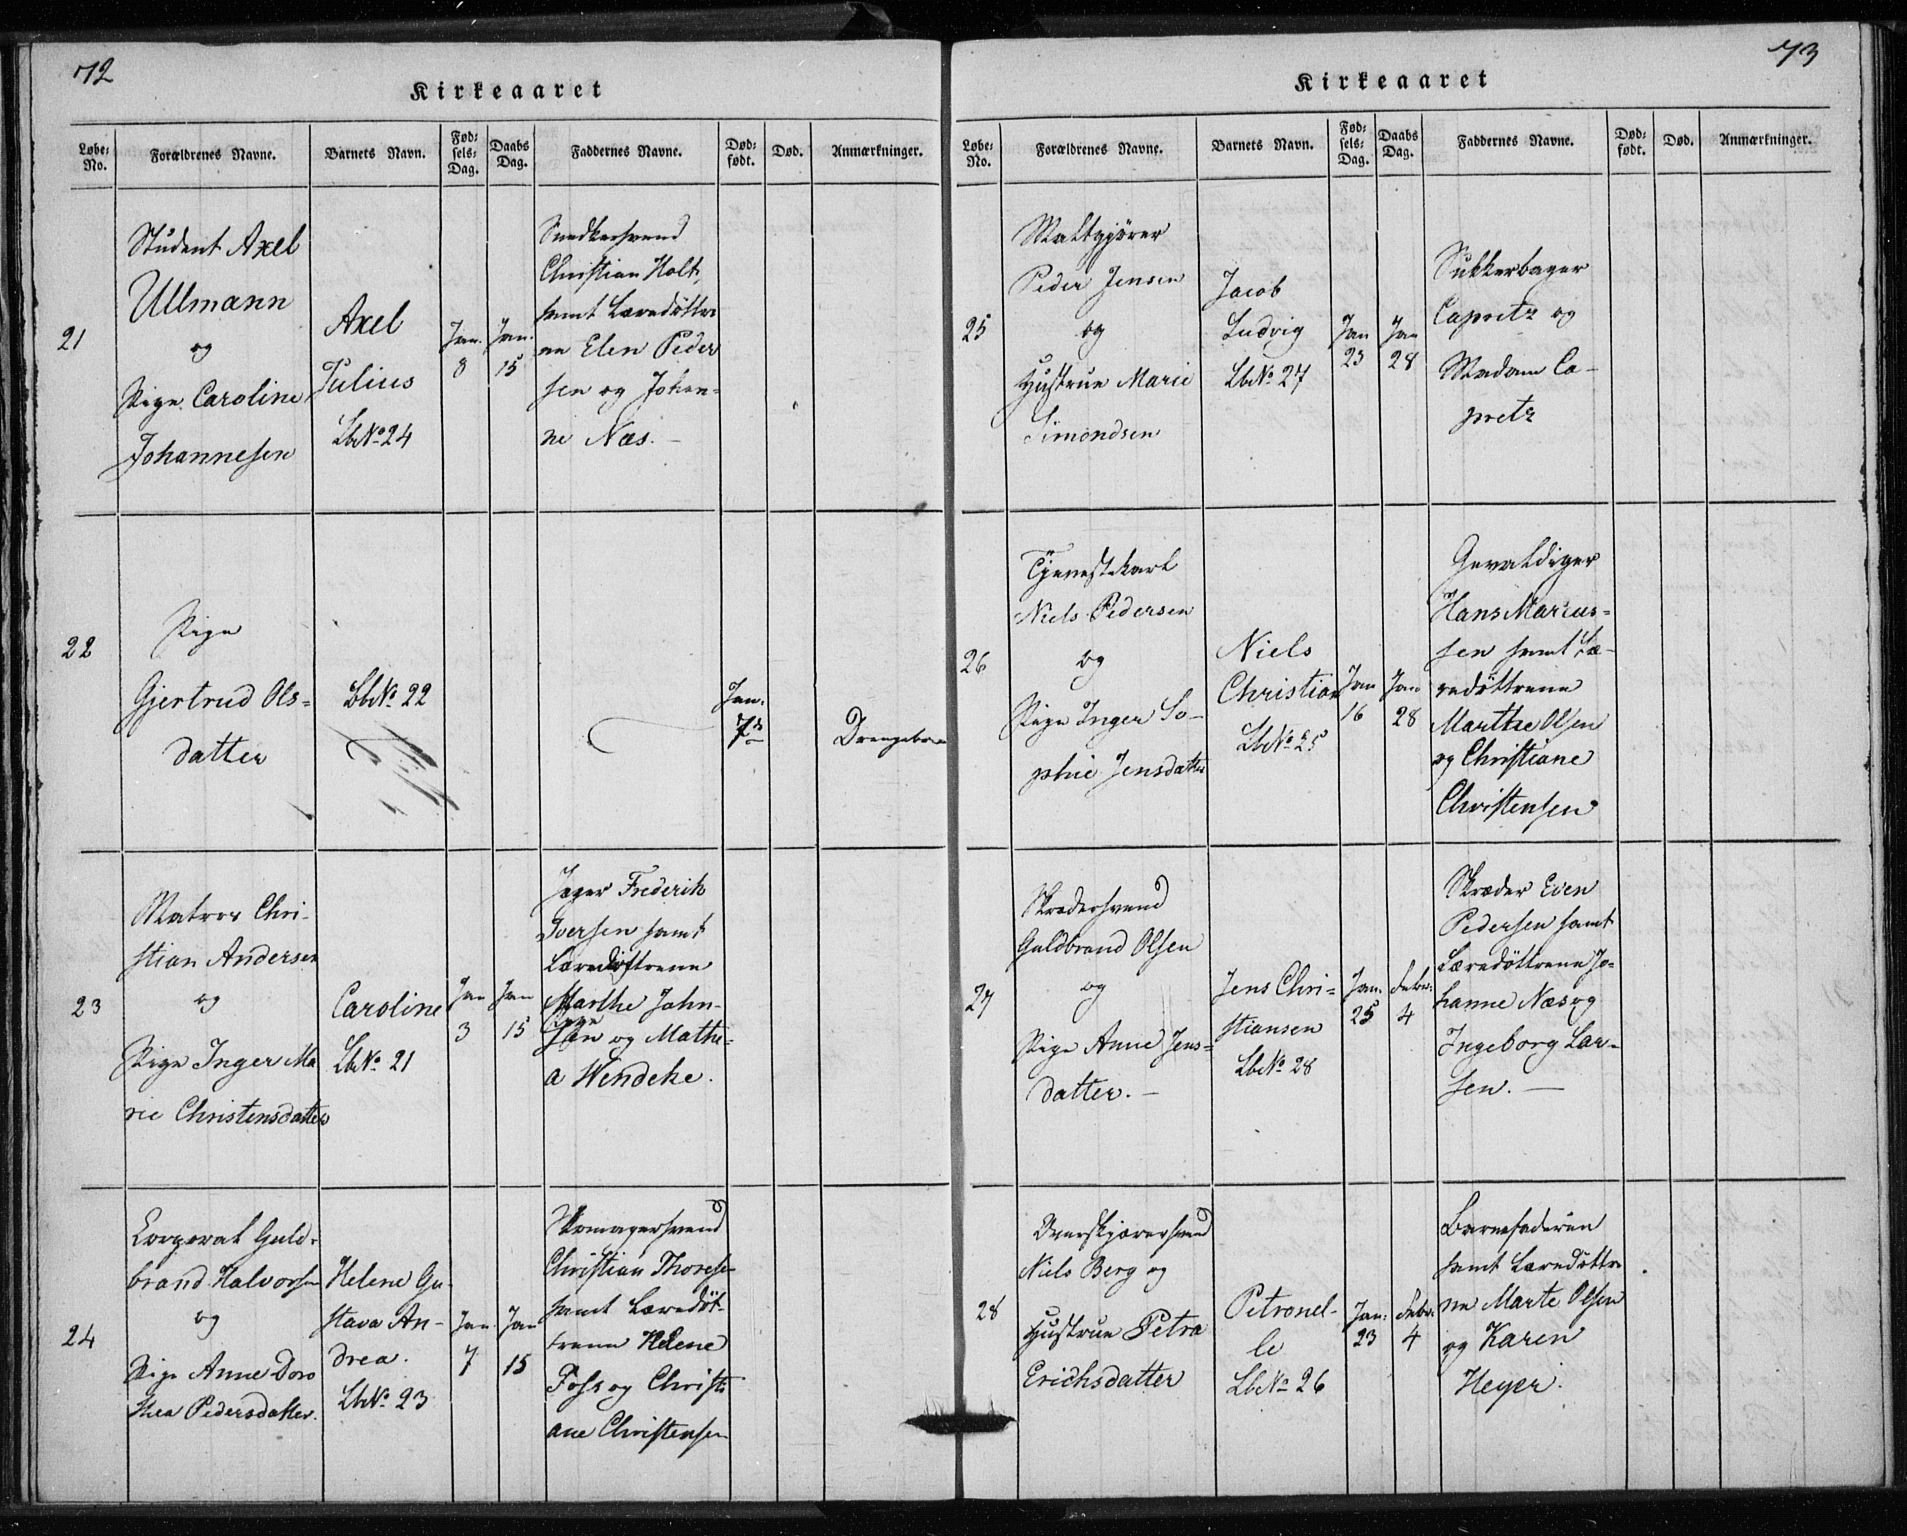 72
Kirkeaaret
Løbe-No.
Forældrenes Navne.
Barnets Navn.
Fødsels-Dag.
Daabs Dag.
Faddernes Navne.
Dødfødt.
Død.
Anmærkninger.
21
Student Axel
Ullmann
og
Pige Caroline
Johannesen
Axel
Julius
LbNo 24
Jan.
8
Jan.
15
Snedkersvend
Christian Holt,
samt Læredöttre
ne Elen Peder
sen og Johan-
ne Næs. -
22
Pige
Gjertrud Ols-
datter
LbNo 22
Jan.
7de
Drengebarn
23
Matros Chri-
stian Andersen
og
Pige Inger Ma
rie Christensdatter
Caroline
LbNo 21
Jan
3
Jan
15
Jæger Frederik
Iversen samt
Læredöttrene
Marthe John-
og Mathe-
a Wendeke.
24
Corporal Guld-
brand Halvorsen
og
Pige Anne Doro
thea Pedersdatter.
Helene Gu-
stava An-
drea.
LbNo 23
Jan.
7
Jan
15
Skomagersvend
Christian Thorese
samt Læredöt-
trene Helene
Foss og Christi
ane Christensen
73
Kirkeaaret
Løbe-No.
Forældrenes Navne.
Barnets Navn.
Fødsels-Dag.
Daabs Dag.
Faddernes Navne.
Dødfødt.
Død.
Anmærkninger.
25
Maltgjörer
Peder Jensen
og
Hustrue Marie
Simondsen
Jacob
Ludvig
LbNo 27
Jan
23
Jan
28
Sukkerbager
Capretz og
Madam Ca-
pretz
26
Tjenestekarl
Niels Pedersen
og
Pige Inger So-
phie Jensdatter
Niels
Christian
LbNo 25
Jan
16
Jan
28
Gevaldiger
Hans Marcus-
sen samt Læ-
redöttrene
Marthe Olsen
og Christiane
Christensen
27
Skrædersvend
Guldbrand Olsen
og
Pige Anne Jens-
datter. -
Jens Chri-
stiansen
LbNo 28
Jan.
25
Febr.
4
Skræder Even
Pedersen samt
Læredöttrene Jo-
hanne Næs og
Ingeborg Lar-
sen. -
28
Overskjærersvend
Niels Berg og
Hustrue Petra
Erichsdatter
Petronel-
le
LbNo 26
Jan:
23
Febr.
4
Barnefaderen
samt Læredöttre
ne Marte Olsen
og Karen
Heyer.